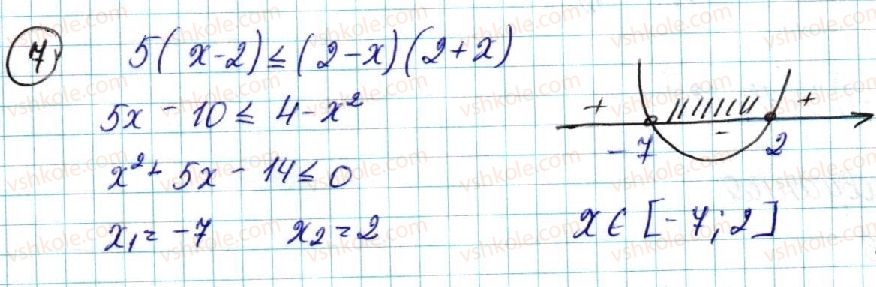 7 5(x-2)≤(2-x)(2+x)
5x-10≤4-x²
x²+5x-14≤0
x₁=-7 x₂=2
+ - +
-7 2
x∈[-7;2]
vshkole.com